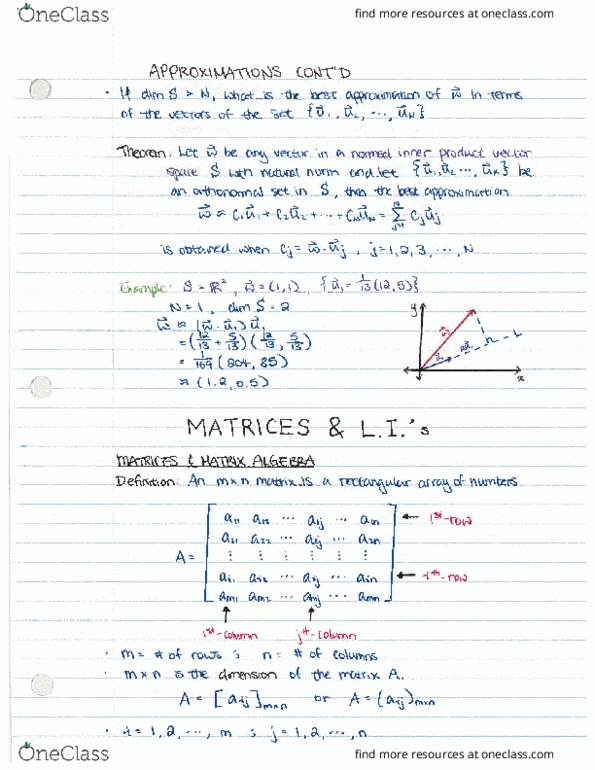 OneClass
find more resources at oneclass.com
APPROXIMATIONS CONT'D
· If dim S > N, what is the best approximation of w⃗ in terms
of the vectors of the set {u⃗₁, u⃗₂, ..., u⃗ₙ}
Theorem: Let w⃗ be any vector in a normed inner product vector
space S with natural norm and let {u⃗₁, u⃗₂ ..., u⃗ₙ} be
an orthonormal set in S, then the best approximation
w⃗ ≈ c₁u⃗₁ + c₂u⃗₂ + ... + cₙu⃗ₙ = Σ cⱼu⃗ⱼ
is obtained when cⱼ = w⃗ · u⃗ⱼ , j = 1, 2, 3, ..., N
Example: S = ℝ², w⃗ = (1,1), {u⃗₁ = 1/13 (12,5)}
N = 1, dim S = 2
w⃗ ≈ (w⃗ · u⃗₁) u⃗₁
= (12/13 + 5/13)(12/13, 5/13)
= 1/169 (204, 85)
≈ (1.2, 0.5)
y
L
x
MATRICES & L.I.'s
MATRICES & MATRIX ALGEBRA
Definition: An m×n matrix is a rectangular array of numbers
a₁₁ a₁₂ ... a₁ⱼ ... a₁ₙ ← 1st-row
a₂₁ a₂₂ ... a₂ⱼ ... a₂ₙ
A = ⋮ ⋮ ⋮ ⋮ ⋮ ⋮
aᵢ₁ aᵢ₂ ... aᵢⱼ ... aᵢₙ ← ith-row
aₘ₁ aₘ₂ ... aₘⱼ ... aₘₙ
1st-column jth-column
· m = # of rows ; n = # of columns
· m×n is the dimension of the matrix A.
A = [aᵢⱼ]ₘₓₙ or A = (aᵢⱼ)ₘₓₙ
· i = 1, 2, ..., m ; j = 1, 2, ..., n
OneClass
find more resources at oneclass.com